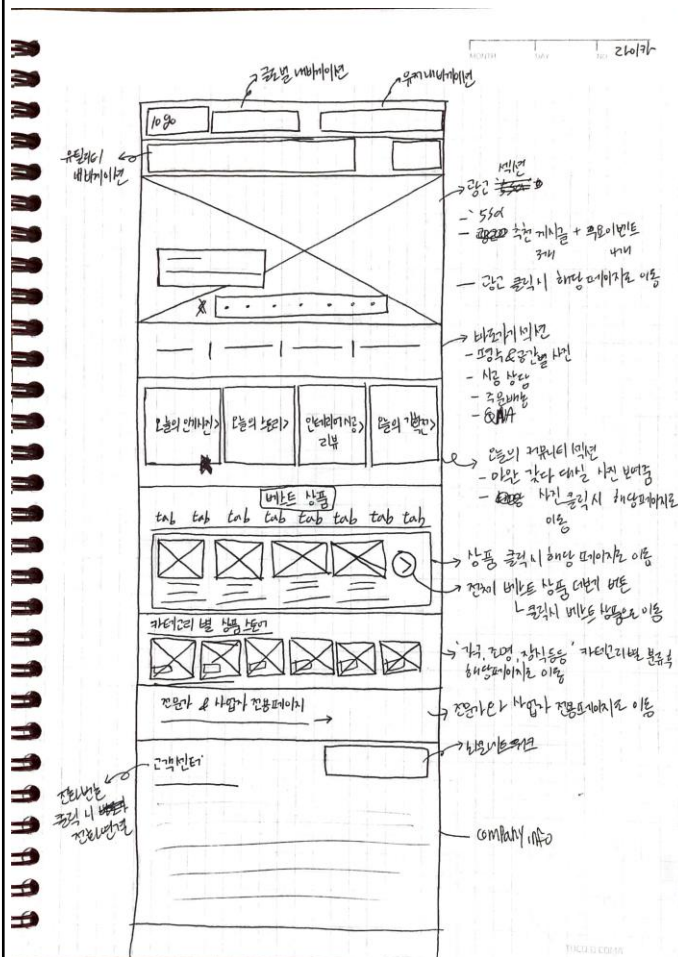 MONTH DAY NO. 라이카
글로벌 내비게이션
유저 내비게이션
logo
유틸리티
내비게이션
광고 섹션
- 추천 게시글 + 주요이벤트
3개 4개
- 광고 클릭시 해당 페이지로 이동
바로가기 섹션
- 평수&공간별 사진
- 시공 상담
- 주문배송
- Q&A
오늘의 인기사진>
오늘의 스토리>
인테리어시공>
리뷰
오늘의 기획전>
오늘의 커뮤니티 섹션
사진 클릭시 해당페이지로
이동
베스트 상품
tab tab tab tab tab tab tab tab
상품 클릭시 해당 페이지로 이동
전체 베스트 상품 더보기 버튼
ㄴ클릭시 베스트 상품으로 이동
카테고리 별 상품스토어
"가구, 조명, 장식등등" 카테고리별 분류후
해당페이지로 이동
전문가 & 사업가 전용페이지
전문가와 사업가 전용페이지로 이동
고객센터
전화번호
클릭 시
전화연결
company info